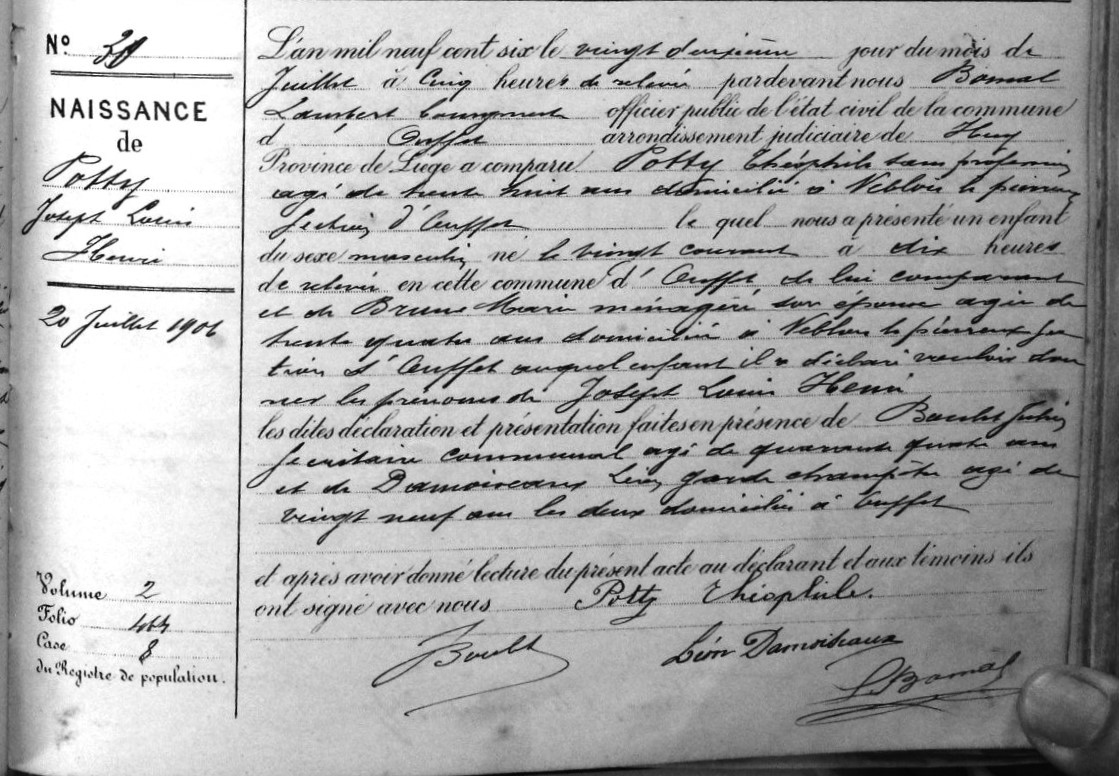 N°
NAISSANCE
de
Potty
Joseph Louis
Henri
20 Juillet 1906
Volume 2
Folio
Case 8
du Registre de population.
L'an mil neuf cent six le vingt deuxième jour du mois de
Juillet à Cinq heures de relevée pardevant nous Bomal
Lambert officier public de l'état civil de la commune
d' Ouffet arrondissement judiciaire de Huy
Province de Liège a comparu Potty Théophile sans profession
agé de trente huit ans domicilié à Neblon le pierreux
section d'Ouffet le quel nous a présenté un enfant
du sexe masculin né le vingt courant à dix heures
de relevée en cette commune d' Ouffet, de lui comparant
et de Brune Marie ménagère son épouse agée de
trente quatre ans domiciliée à Neblon le pierreux sec
tion d'Ouffet auquel enfant il a déclaré vouloir don
ner les prénoms de Joseph Louis Henri
les dites déclaration et présentation faites en présence de Boulet
secrétaire communal agé de quarante quatre ans
et de Damoiseaux Léon garde champêtre agé de
vingt neuf ans les deux domiciliés à Ouffet
et après avoir donné lecture du présent acte au déclarant et aux témoins ils
ont signé avec nous Potty Théophile.
Boulet Léon Damoiseaux
L. Bomal